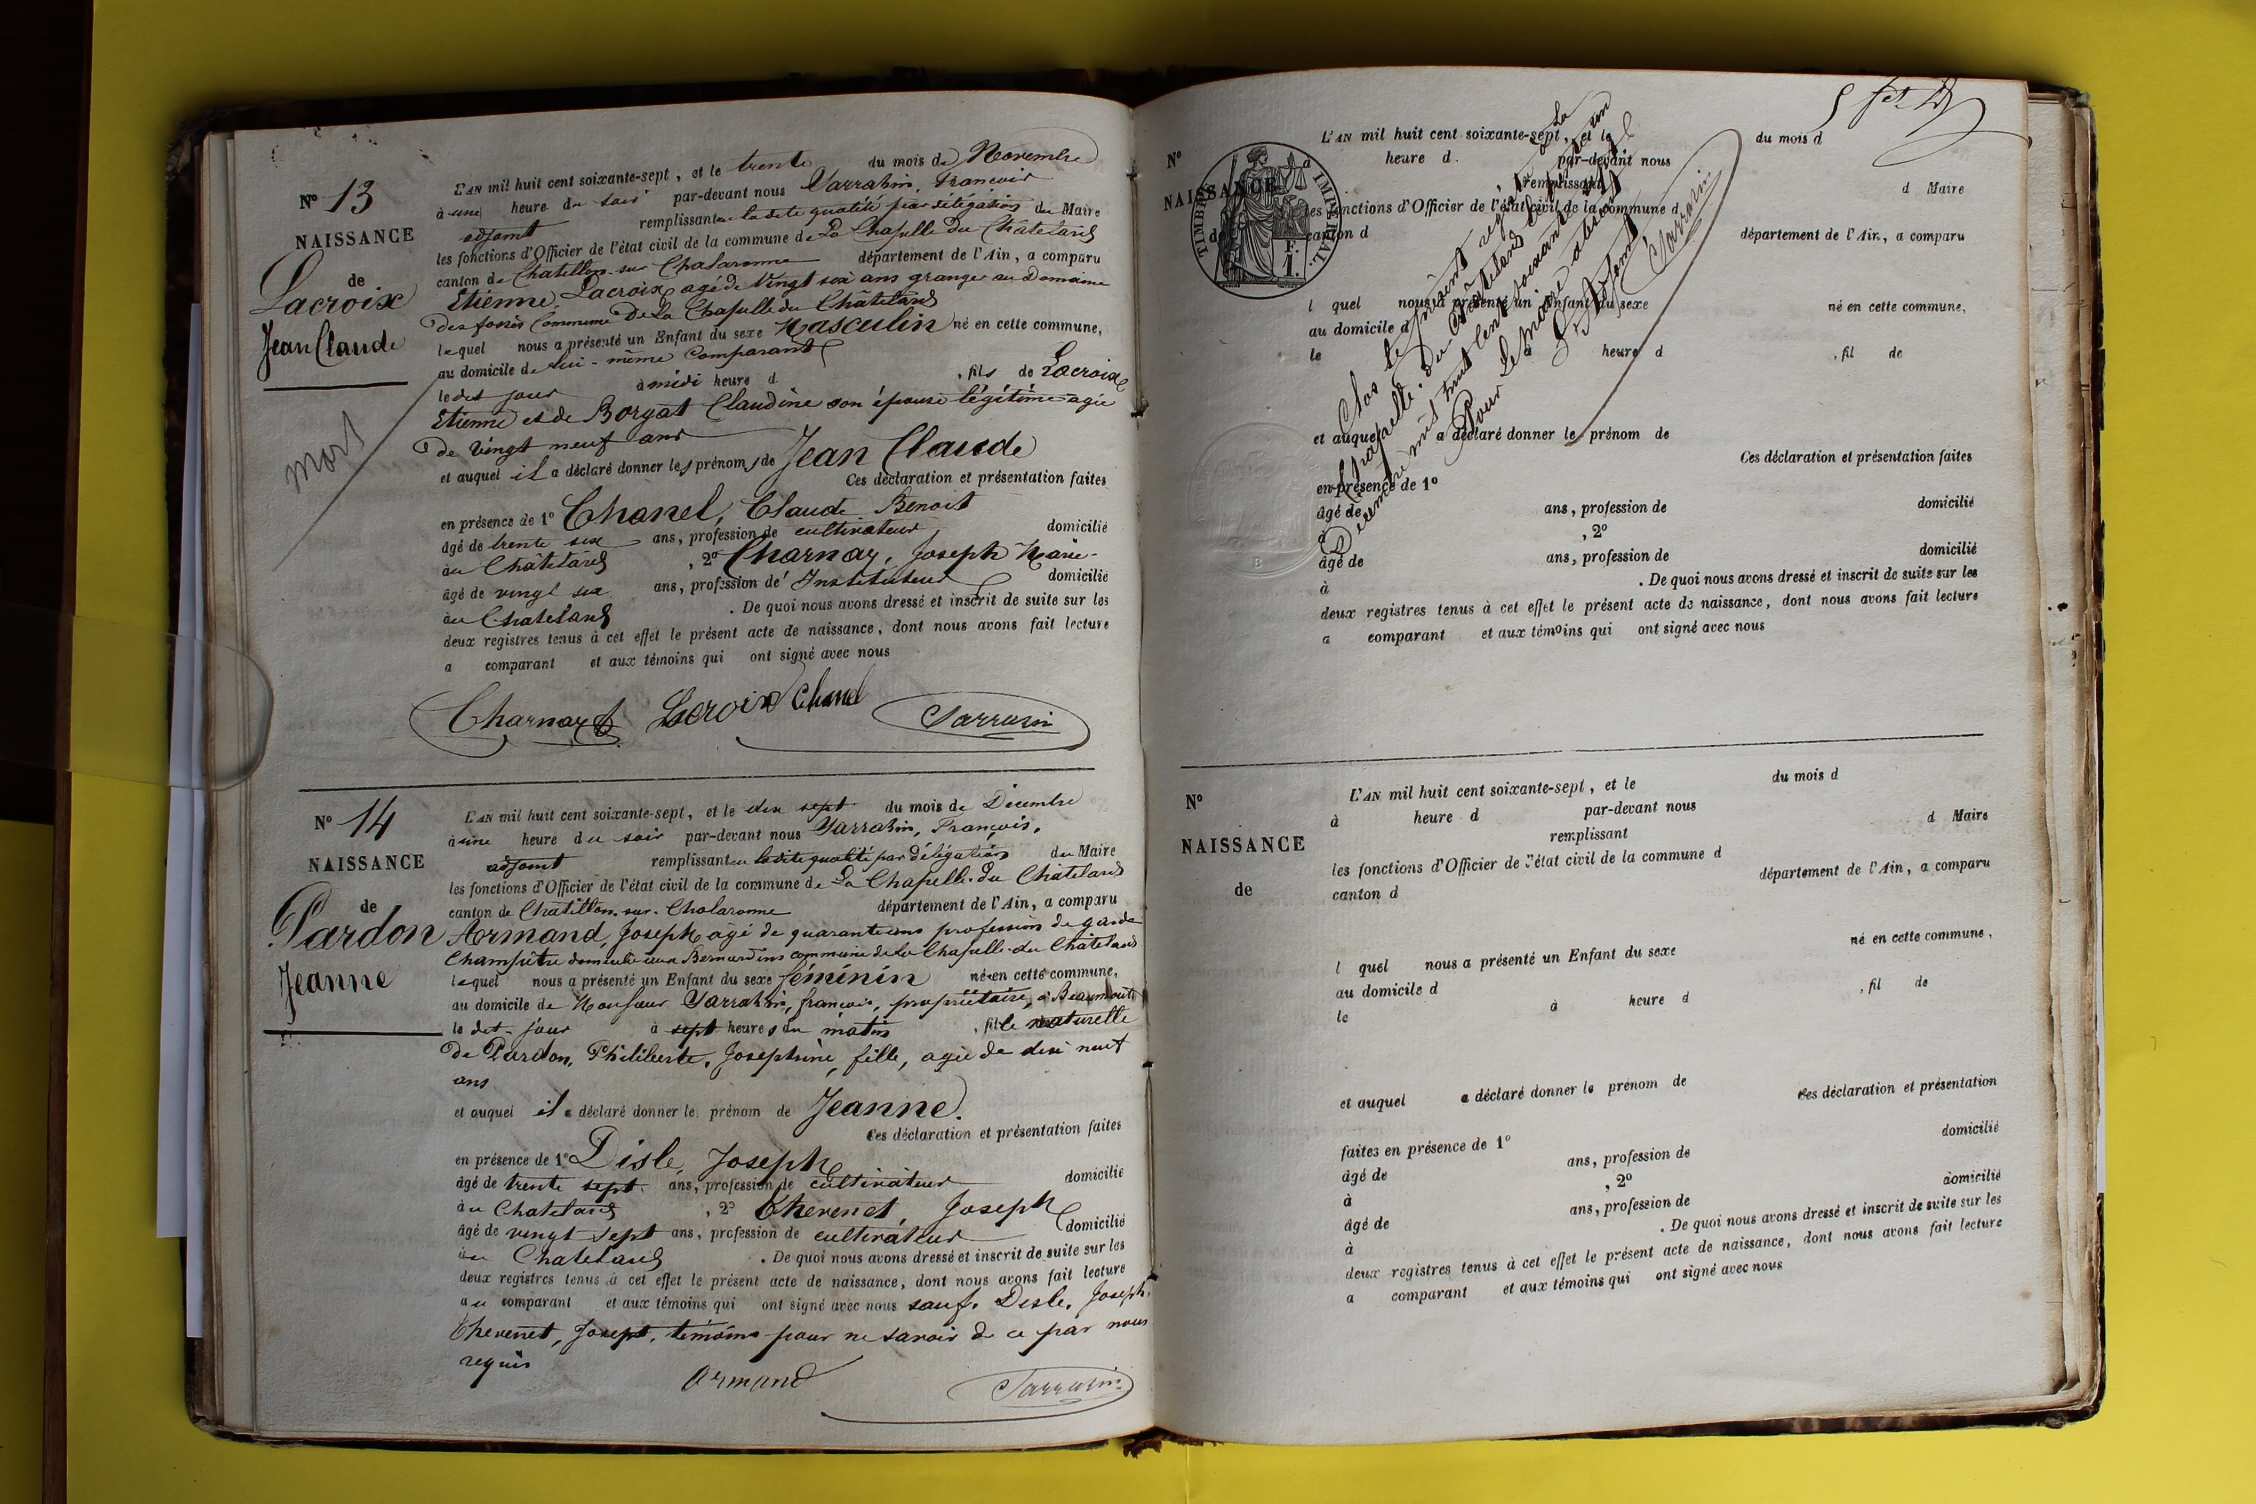 N° 13
NAISSANCE
de
Lacroix
Jean Claude
mort
L'AN mil huit cent soixante-sept, et le trente du mois de Novembre
à une heure du soir par-devant nous Sarrasin, François
adjoint remplissant en ladite qualité par délégation du Maire
les fonctions d'Officier de l'état civil de la commune de La Chapelle du Châtelard
canton de Chatillon-sur-Chalaronne département de l'Ain, a comparu
Etienne Lacroix agé de vingt six ans granger au Domaine
des fossés Commune De La Chapelle du Châtelard
lequel nous a présenté un Enfant du sexe Masculin né en cette commune,
au domicile de lui-même comparant
le dit jour à midi heure d , fils de Lacroix
Etienne et de Borgat Claudine son épouse légitime agée
de vingt neuf ans
et auquel il a déclaré donner les prénoms de Jean Claude
Ces déclaration et présentation faites
en présence de 1° Chanel, Claude Benoit
âgé de trente six ans, profession de cultivateur domicilié
au Châtelard , 2° Charnay, Joseph Marie
âgé de vingt six ans, profession d' Instituteur domicilié
au Chatelard . De quoi nous avons dressé et inscrit de suite sur les
deux registres tenus à cet effet le présent acte de naissance, dont nous avons fait lecture
a comparant et aux témoins qui ont signé avec nous
Charnay Lacroix Chanel Sarrasin
N° 14
NAISSANCE
de
Pardon
Jeanne
L'AN mil huit cent soixante-sept, et le dix sept du mois de Décembre
à une heure du soir par-devant nous Sarrasin, François,
adjoint remplissant en ladite qualité par délégation du Maire
les fonctions d'Officier de l'état civil de la commune de La Chapelle-du Châtelard
canton de Chatillon-sur-Chalaronne département de l'Ain, a comparu
Armand, Joseph agé de quarante ans profession de garde
champêtre domicilié aux Bernardins commune de la Chapelle-du Châtelard
lequel nous a présenté un Enfant du sexe féminin né en cette commune,
au domicile de Monsieur Sarrasin, françois, propriétaire, à Beaumont
le dit jour à sept heures du matin , fille naturelle
de Pardon, Philiberte, Joséphine, fille, agée de dix neuf
ans
et auquel il a déclaré donner le prénom de Jeanne.
Ces déclaration et présentation faites
en présence de 1° Disle, Joseph
âgé de trente sept ans, profession de cultivateur domicilié
au Chatelard , 2° Thevenet, Joseph
âgé de vingt sept ans, profession de cultivateur domicilié
au Chatelard . De quoi nous avons dressé et inscrit de suite sur les
deux registres tenus à cet effet le présent acte de naissance, dont nous avons fait lecture
au comparant et aux témoins qui ont signé avec nous sauf. Disle, Joseph.
Thevenet, Joseph, témoins pour ne savoir de ce par nous
requis
Armand Sarrasin
N°
NAISSANCE
d
TIMBRE IMPERIAL.
F.
1.
L'AN mil huit cent soixante-sept, et le du mois d
à heure d. par-devant nous
remplissant d Maire
les fonctions d'Officier de l'état civil de la commune d
canton d département de l'Ain, a comparu
l quel nous a présenté un Enfant du sexe né en cette commune,
au domicile d
le à heure d , fil de
et auquel a déclaré donner le prénom de
Ces déclaration et présentation faites
en présence de 1°
âgé de ans, profession de domicilié
à , 2°
âgé de ans, profession de domicilié
à . De quoi nous avons dressé et inscrit de suite sur les
deux registres tenus à cet effet le présent acte de naissance, dont nous avons fait lecture
a comparant et aux témoins qui ont signé avec nous
Clos le présent registre à La
Chapelle. du Chatelard le trente un
Décembre mil huit cent soixante sept
Pour le Maire absent
L'adjoint
Sarrasin
N°
NAISSANCE
de
L'AN mil huit cent soixante-sept, et le du mois d
à heure d par-devant nous
remplissant d Maire
les fonctions d'Officier de l'état civil de la commune d
canton d département de l'Ain, a comparu
l quel nous a présenté un Enfant du sexe né en cette commune,
au domicile d
le à heure d , fil de
et auquel a déclaré donner le prénom de
Ces déclaration et présentation
faites en présence de 1° domicilié
âgé de ans, profession de
à , 2° domicilié
âgé de ans, profession de
à . De quoi nous avons dressé et inscrit de suite sur les
deux registres tenus à cet effet le présent acte de naissance, dont nous avons fait lecture
a comparant et aux témoins qui ont signé avec nous